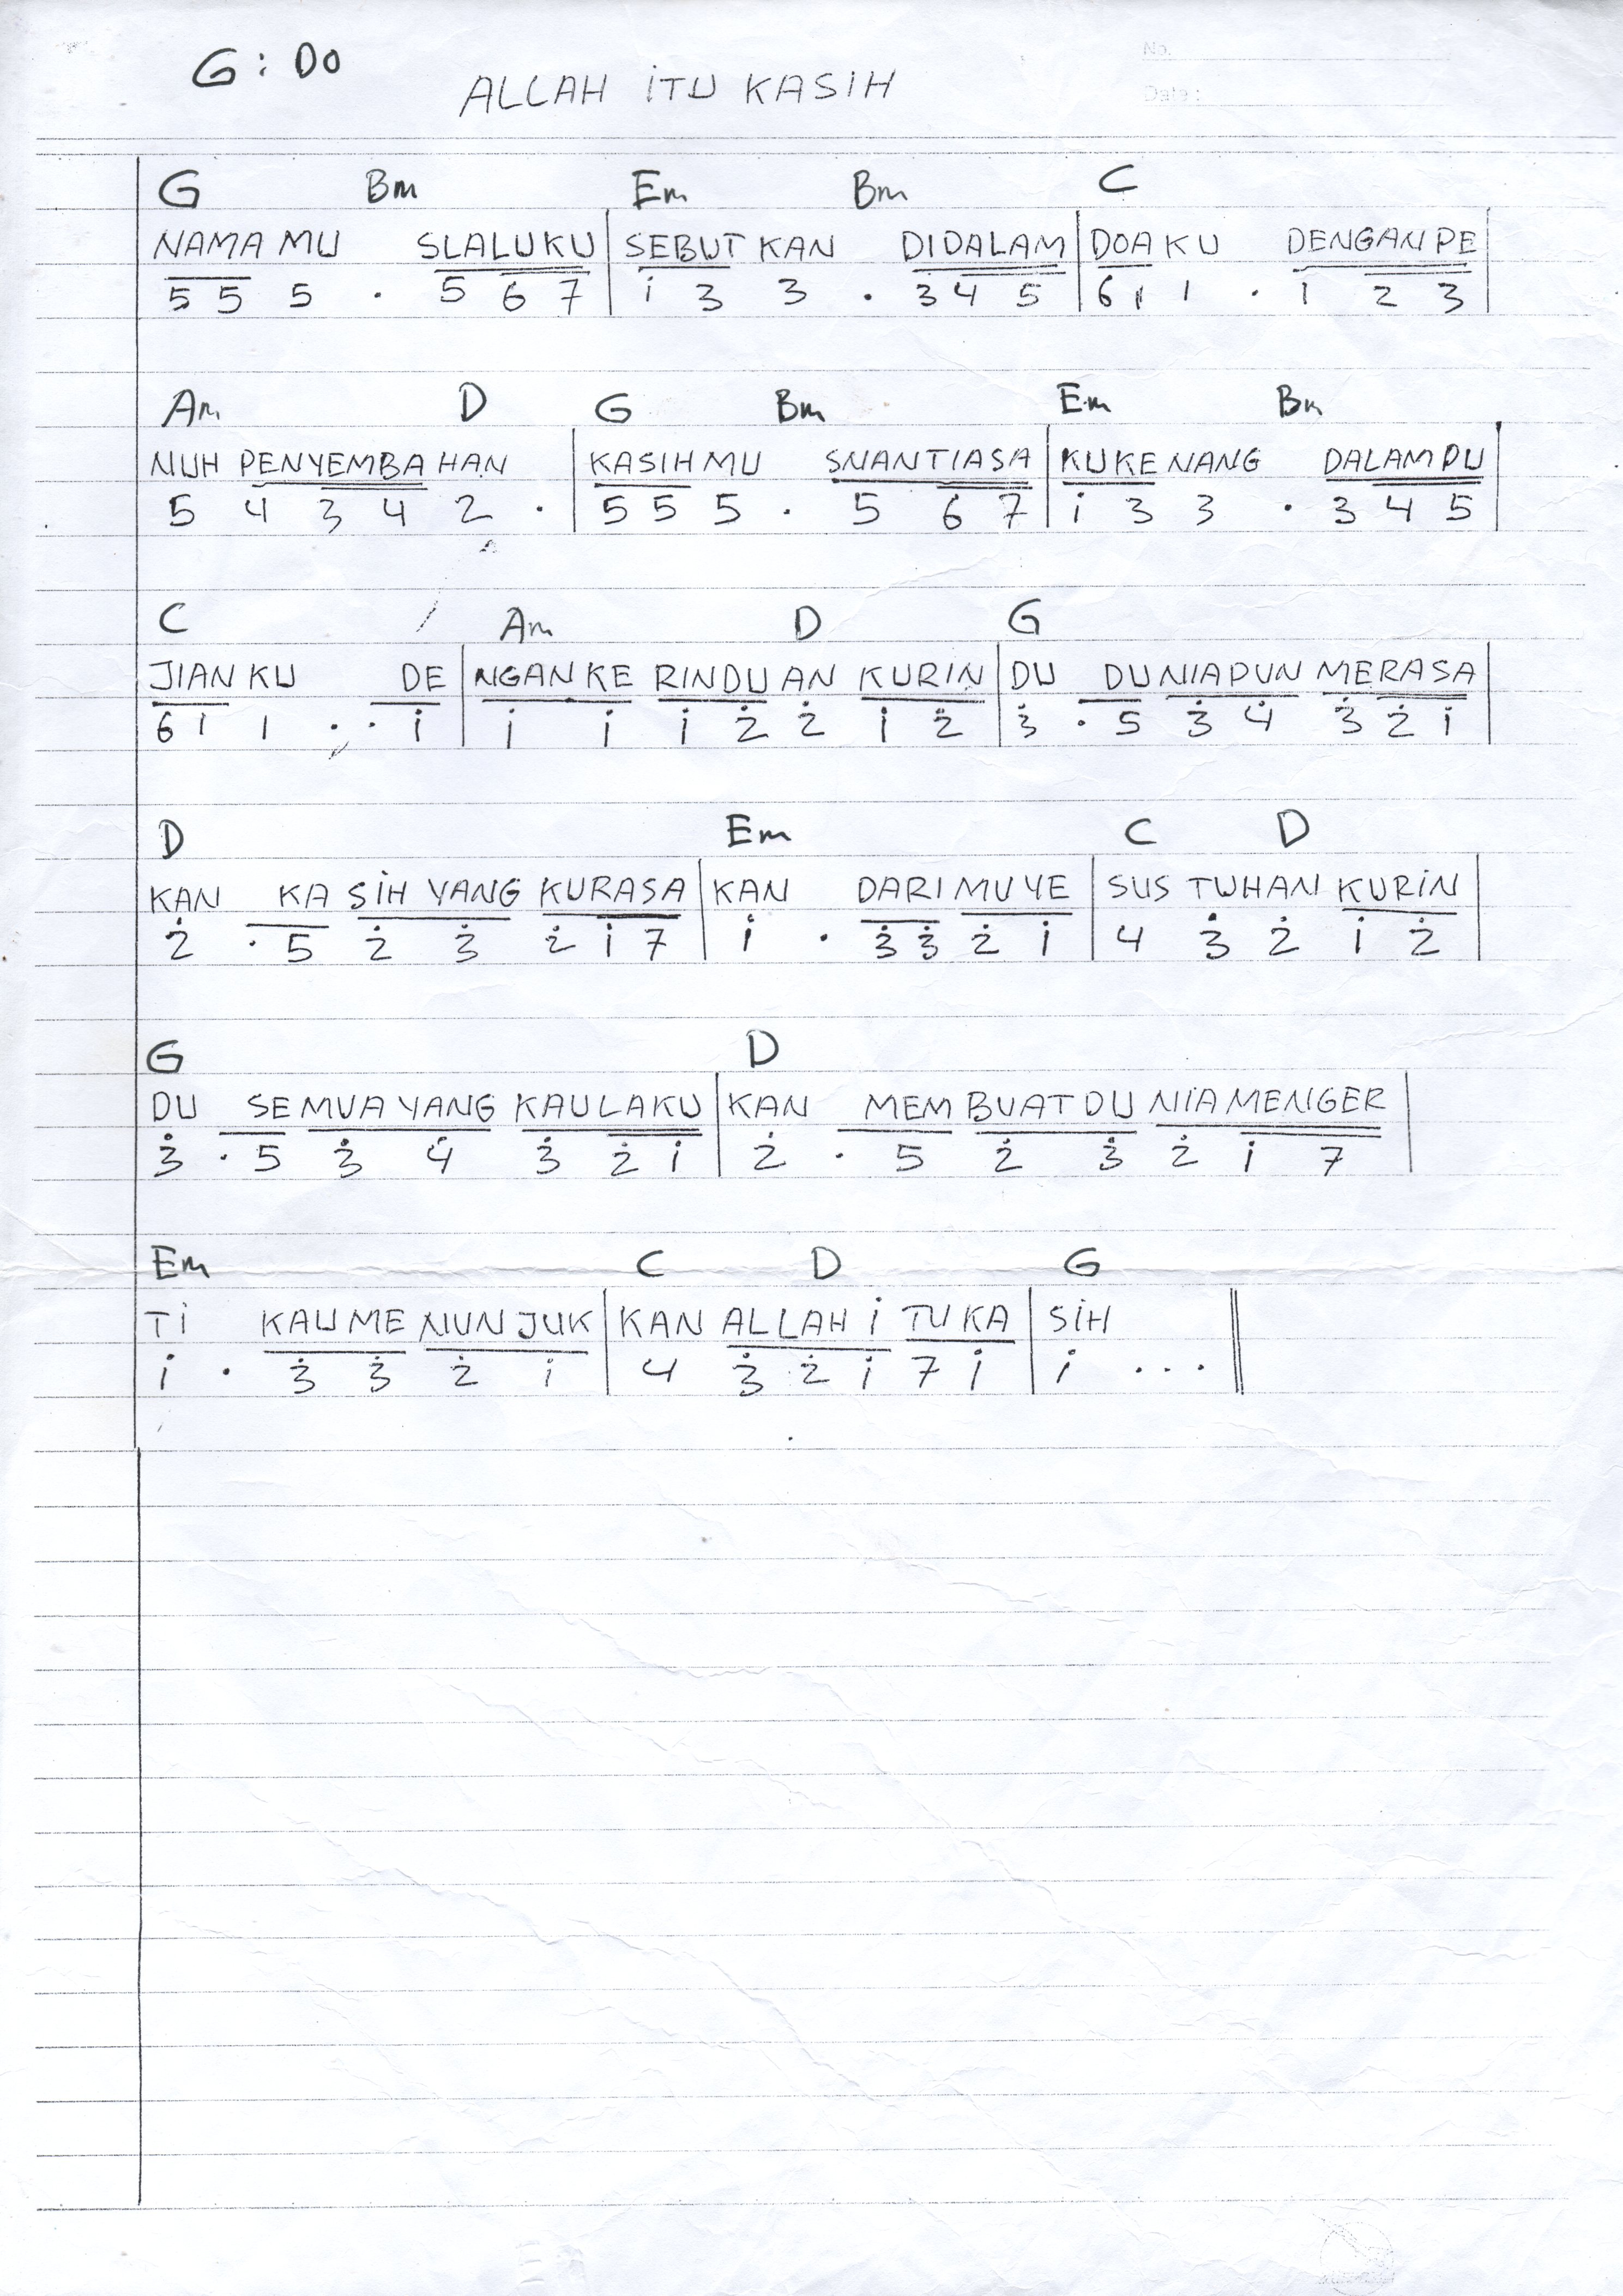 G : DO
No.
ALLAH iTU KASIH
Date :
G Bm Em Bm C
NAMA MU SLALUKU | SEBUT KAN DIDALAM | DOA KU DENGAN PE |
5 5 5 . 5 6 7 | i 3 3 . 3 4 5 | 6 1 1 . 1 2 3 |
Am D G Bm Em Bm
NUH PENYEMBA HAN | KASIH MU SNANTIASA | KUKE NANG DALAM PU |
5 4 3 4 2 . | 5 5 5 . 5 6 7 | i 3 3 . 3 4 5 |
C Am D G
JIAN KU DE | NGAN KE RINDU AN KURIN | DU DUNIAPUN MERASA |
6 1 1 . . i | i i i 2̇ 2̇ i 2̇ | 3̇ . 5 3̇ 4̇ 3̇ 2̇ i |
D Em C D
KAN KA SiH YANG KURASA | KAN DARI MU YE | SUS TUHAN KURiN |
2̇ . 5 2̇ 3̇ 2̇ i 7 | i . 3̇ 3̇ 2̇ i | 4 3̇ 2̇ i 2̇ |
G D
DU SEMUA YANG KAULAKU | KAN MEM BUAT DU NIA MENGER |
3̇ . 5 3̇ 4̇ 3̇ 2̇ i | 2̇ . 5 2̇ 3̇ 2̇ i 7 |
Em C D G
Ti KAU ME NUN JUK | KAN ALLAH i TU KA | SiH ||
i . 3̇ 3̇ 2̇ i | 4 3̇ 2̇ i 7 i | i . . . ||